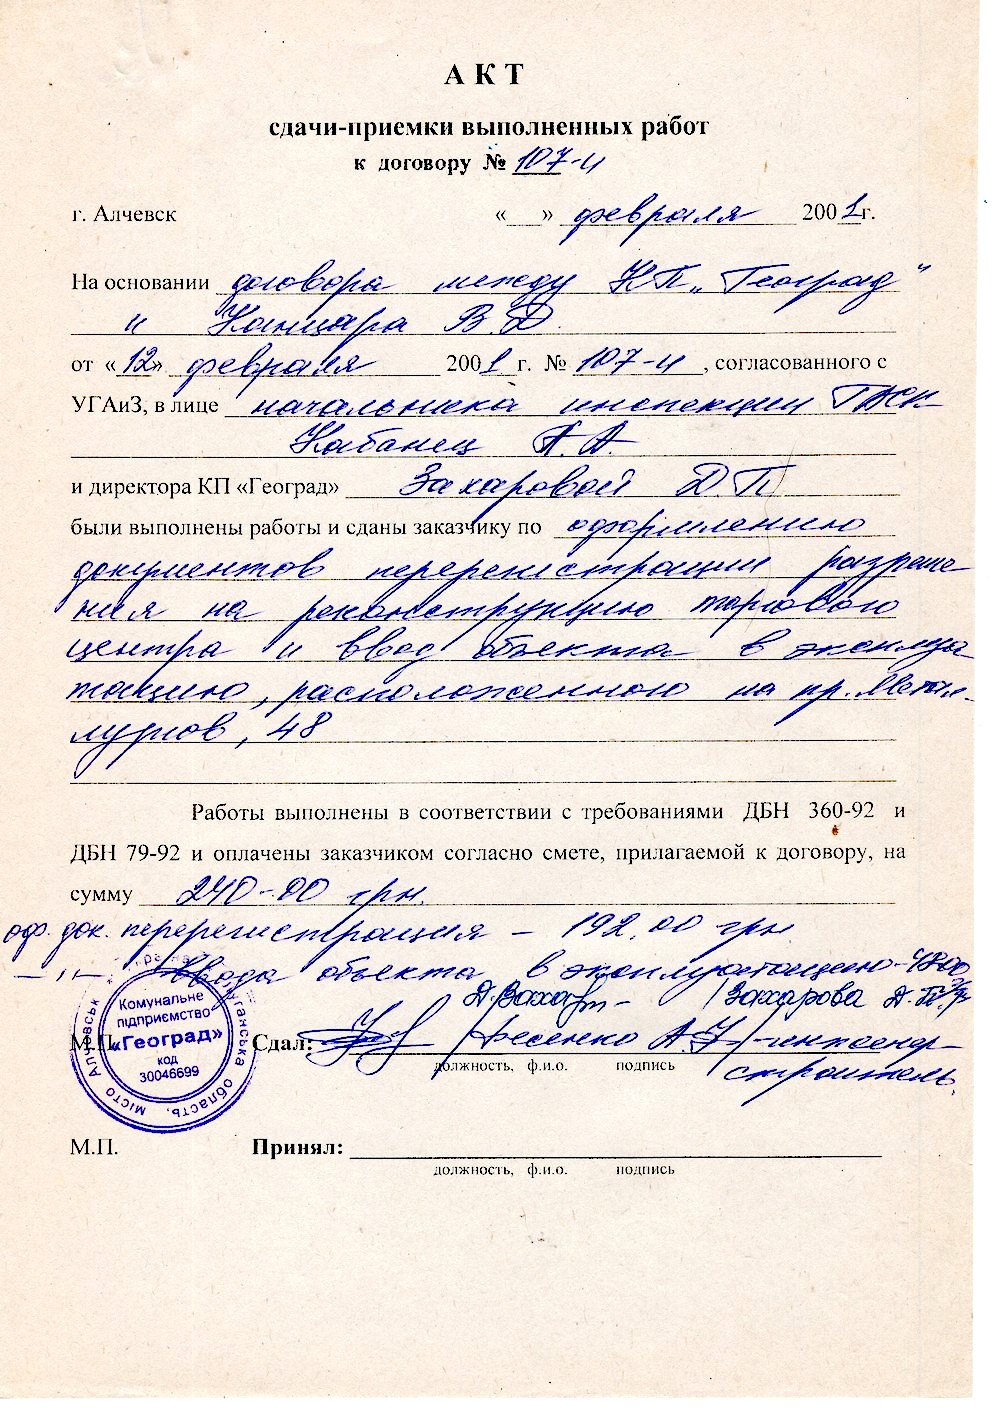 АКТ
сдачи-приемки выполненных работ
к договору № 107-и
г. Алчевск «___» февраля 2001г.
На основании договора между КП „Географад"
и Канцара В Д.
от «12» февраля 2001 г. № 107-и, согласованного с
УГАиЗ, в лице начальника инспекции ГАСК
Кабанец А.А.
и директора КП «Геоград» Захаровой Д.П
были выполнены работы и сданы заказчику по оформлению
документов перерегистрации разреше
ния на реконструкцию торгового
центра и ввод объекта в эксплуа
тацию, расположенного на пр. Метал-
лургов, 48
Работы выполнены в соответствии с требованиями ДБН 360-92 и
ДБН 79-92 и оплачены заказчиком согласно смете, прилагаемой к договору, на
сумму 240-00 грн.
оф. док. перерегистрация – 192.00 грн
— " — Ввода объекта в эксплуатацию - 4800
Захарова Д.П.
М.П. Сдал: Фесенко А.У - инженер-
должность, ф.и.о. подпись
строитель.
Комунальне
підприємство
«Геоград»
код
30046699
місто Алчевськ
область
М.П. Принял:
должность, ф.и.о. подпись